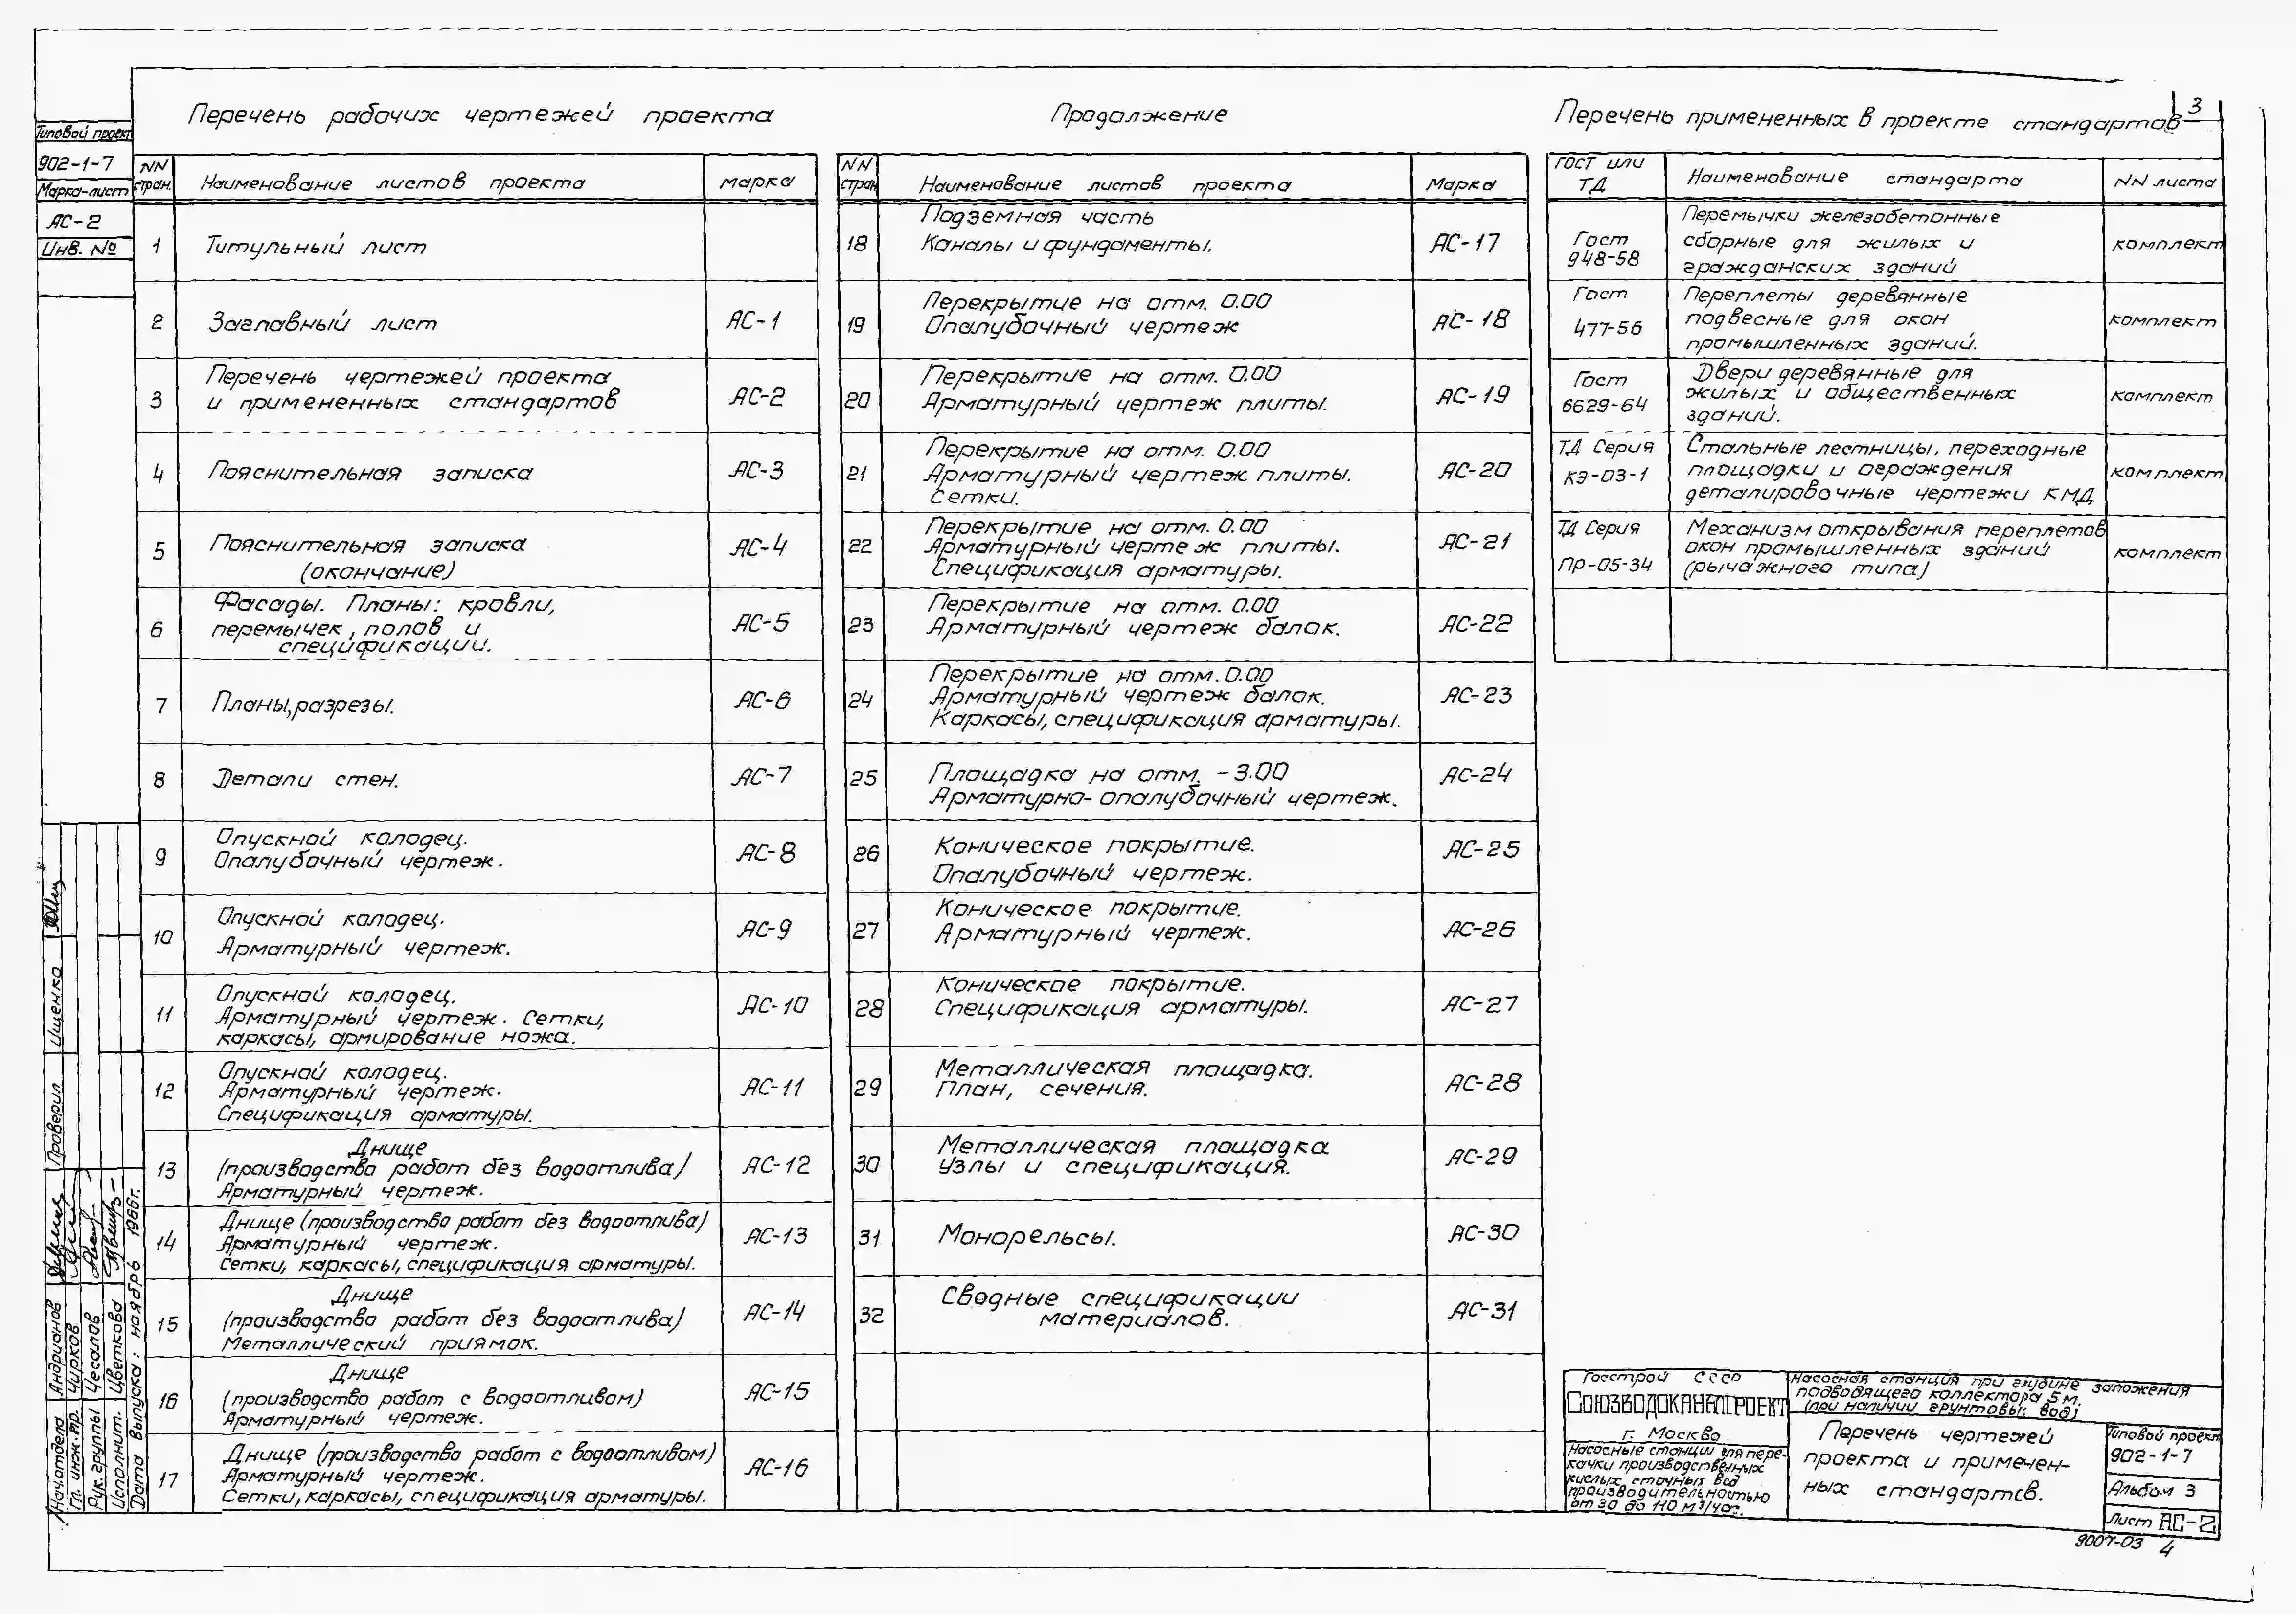 3
Типовой проект
902-1-7
Марка-лист
АС-2
Инв. №
Перечень рабочих чертежей проекта
NN стран.
Наименование листов проекта
марка
1
Титульный лист
2
Заглавный лист
АС-1
3
Перечень чертежей проекта
и примененных стандартов
АС-2
4
Пояснительная записка
АС-3
5
Пояснительная записка
(окончание)
АС-4
6
Фасады. Планы: кровли,
перемычек, полов и
спецификации.
АС-5
7
Планы, разрезы.
АС-6
8
Детали стен.
АС-7
9
Опускной колодец.
Опалубочный чертеж.
АС-8
10
Опускной колодец.
Арматурный чертеж.
АС-9
11
Опускной колодец.
Арматурный чертеж. Сетки,
каркасы, армирование ножа.
АС-10
12
Опускной колодец.
Арматурный чертеж.
Спецификация арматуры.
АС-11
13
Днище
(производство работ без водоотлива)
Арматурный чертеж.
АС-12
14
Днище (производство работ без водоотлива)
Арматурный чертеж.
Сетки, каркасы, спецификация арматуры.
АС-13
15
Днище
(производство работ без водоотлива)
Металлический приямок.
АС-14
16
Днище
(производство работ с водоотливом)
Арматурный чертеж.
АС-15
17
Днище (производство работ с водоотливом)
Арматурный чертеж.
Сетки, каркасы, спецификация арматуры.
АС-16
Продолжение
NN стран
Наименование листов проекта
Марка
18
Подземная часть
Каналы и фундаменты.
АС-17
19
Перекрытие на отм. 0.00
Опалубочный чертеж
АС-18
20
Перекрытие на отм. 0.00
Арматурный чертеж плиты.
АС-19
21
Перекрытие на отм. 0.00
Арматурный чертеж плиты.
Сетки.
АС-20
22
Перекрытие на отм. 0.00
Арматурный чертеж плиты.
Спецификация арматуры.
АС-21
23
Перекрытие на отм. 0.00
Арматурный чертеж балок.
АС-22
24
Перекрытие на отм. 0.00
Арматурный чертеж балок.
Каркасы, спецификация арматуры.
АС-23
25
Площадка на отм. -3.00
Арматурно-опалубочный чертеж.
АС-24
26
Коническое покрытие.
Опалубочный чертеж.
АС-25
27
Коническое покрытие.
Арматурный чертеж.
АС-26
28
Коническое покрытие.
Спецификация арматуры.
АС-27
29
Металлическая площадка.
План, сечения.
АС-28
30
Металлическая площадка
Узлы и спецификация.
АС-29
31
Монорельсы.
АС-30
32
Сводные спецификации
материалов.
АС-31
Перечень примененных в проекте стандартов
ГОСТ или ТД
Наименование стандарта
NN листа
Гост
948-58
Перемычки железобетонные
сборные для жилых и
гражданских зданий
комплект
Гост
477-56
Переплеты деревянные
подвесные для окон
промышленных зданий.
комплект
Гост
6629-64
Двери деревянные для
жилых и общественных
зданий.
комплект
ТД Серия
КЭ-03-1
Стальные лестницы, переходные
площадки и ограждения
деталировочные чертежи КМД
комплект
ТД Серия
Пр-05-34
Механизм открывания переплетов
окон промышленных зданий
(рычажного типа)
комплект
Нач. отдела Андрианов
Гл. инж. пр. Чирков
Рук. группы Чесалов
Исполнит. Цветкова
Проверил Ищенко
Дата выпуска: ноябрь 1966г.
Госстрой СССР
СОЮЗВОДОКАНАЛПРОЕКТ
г. Москва
Насосные станции для пере-
качки производственных
кислых сточных вод
производительностью
от 30 до 110 м³/час.
Насосная станция при глубине заложения
подводящего коллектора 5 м.
(при наличии грунтовых вод)
Перечень чертежей
проекта и применен-
ных стандартов.
Типовой проект
902-1-7
Альбом 3
Лист АС-2
9007-03 4